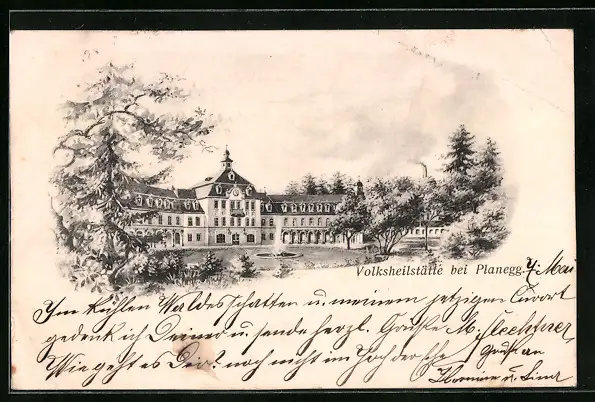 Volksheilstätte bei Planegg. 4. Mai
Im kühlen Waldesschatten u. meinem jetzigen Curort
gedenk ich Deiner u. sende herzl. Grüße M.
Wie geht es Dir? noch nicht im
Grüße an
u.